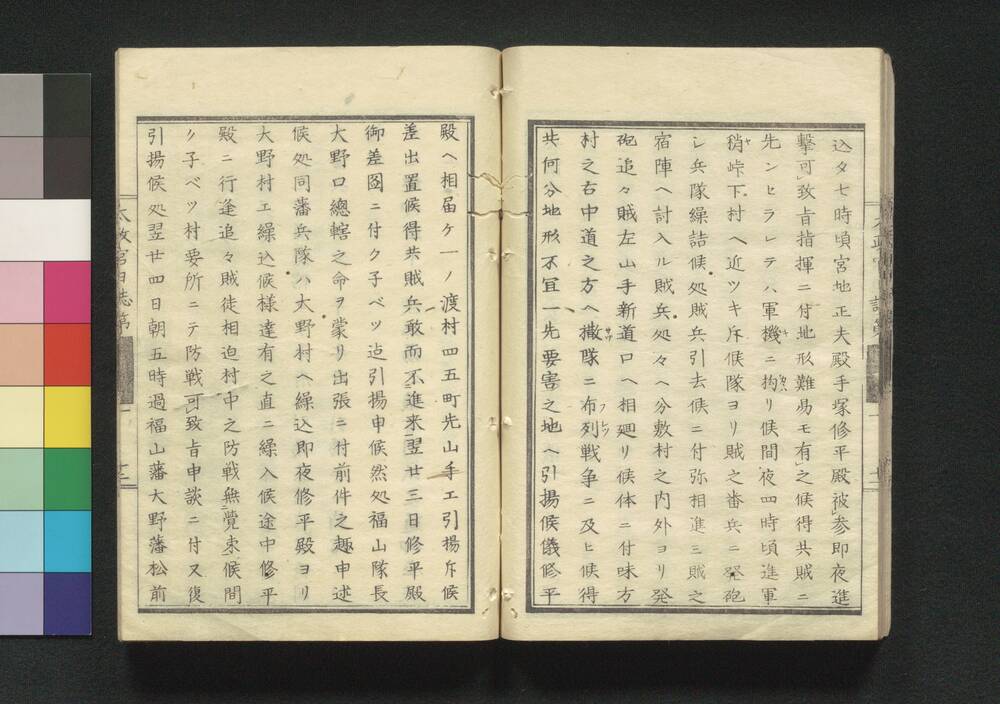 込タ七時頃宮地正夫殿手塚修平殿被参即夜進
撃可致旨指揮ニ付地形難易モ有之候得共賊ニ
先ンセラレテハ軍機ニ拘リ候間夜四時頃進軍
稍峠下村ヘ近ツキ斥候隊ヨリ賊之番兵ニ発砲
シ兵隊繰詰候処賊兵引去候ニ付弥相進ミ賊之
宿陣ヘ討入ル賊兵処々ヘ分敷村之内外ヨリ発
砲追々賊左山手新道口ヘ相廻リ候体ニ付味方
村之右中道之方ヘ撒隊ニ布列戦争ニ及ヒ候得
共何分地形不宜一先要害之地ヘ引揚候儀修平
殿ヘ相届ケ一ノ渡村四五町先山手エ引揚斥候
差出置候得共賊兵敢而不進来翌廿三日修平殿
御差図ニ付ク子ベツ迠引揚申候然処福山隊長
大野口總轄之命ヲ蒙リ出張ニ付前件之趣申述
候処同藩兵隊ハ大野村ヘ繰込即夜修平殿ヨリ
大野村エ繰込候様達有之直ニ繰入候途中修平
殿ニ行逢追々賊徒相迫村中之防戦無覺束候間
ク子ベツ村要所ニテ防戦可致旨申談ニ付又復
引揚候処翌廿四日朝五時過福山藩大野藩松前
太政官日誌第